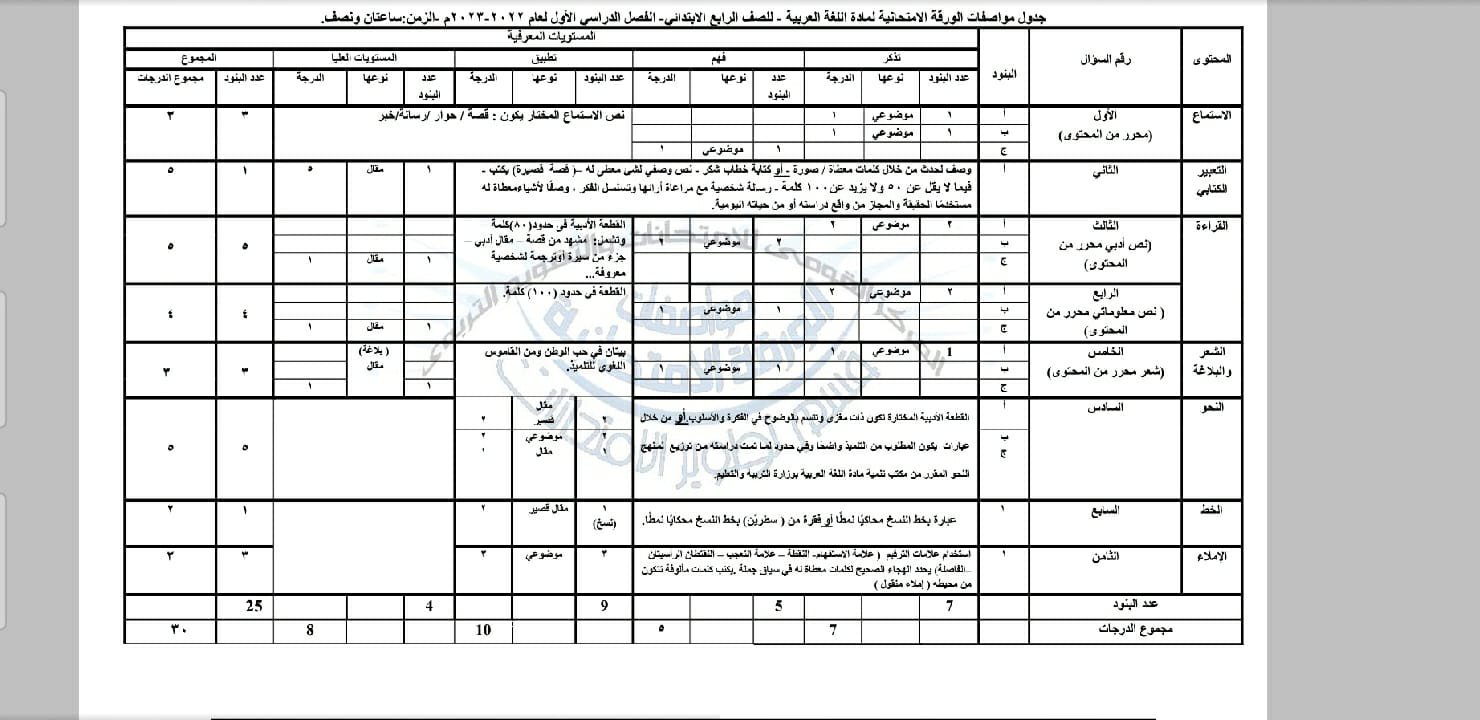 جدول مواصفات الورقة الامتحانية لمادة اللغة العربية - للصف الرابع الابتدائي- الفصل الدراسي الأول لعام ٢٠٢٢-٢٠٢٣م -الزمن:ساعتان ونصف.
المحتوى رقم السؤال البنود المستويات المعرفية
تذكر فهم تطبيق المستويات العليا المجموع
عدد البنود نوعها الدرجة عدد البنود نوعها الدرجة عدد البنود نوعها الدرجة عدد البنود نوعها الدرجة عدد البنود مجموع الدرجات
الاستماع الأول أ ١ موضوعي ١ نص الاستماع المختار يكون : قصة / حوار /رسالة/خبر ٣ ٣
(محرر من المحتوى) ب ١ موضوعي ١
ج ١ موضوعي ١
التعبير الكتابي الثاني أ وصف لحدث من خلال كلمات معطاة / صورة - أو كتابة خطاب شكر - نص وصفي لشئ معطى له –( قصة قصيرة) يكتب - ١ مقال ٥ ١ ٥
فيما لا يقل عن ٥٠ ولا يزيد عن ١٠٠ كلمة - رسالة شخصية مع مراعاة أرائها وتسلسل الفكر ، وصفًا لأشياء معطاة له
مستخدمًا الحقيقة والمجاز من واقع دراسته أو من حياته اليومية.
القراءة الثالث أ ٢ موضوعي ٢ القطعة الأدبية في حدود(٨٠)كلمة
(نص أدبي محرر من ب ٢ موضوعي ٢ وتشمل: مشهد من قصة – مقال أدبي – ٥ ٥
المحتوى) ج جزء من سيرة أوترجمة لشخصية ١ مقال ١
معروفة...
الرابع أ ٢ موضوعي ٢ القطعة في حدود (١٠٠) كلمة.
( نص معلوماتي محرر من ب ١ موضوعي ١ ٤ ٤
المحتوى) ج ١ مقال ١
الشعر الخامس أ 1 موضوعي ١ بيتان في حب الوطن ومن القاموس ( بلاغة)
والبلاغة (شعر محرر من المحتوى) ب ١ موضوعي ١ اللغوى للتلميذ. مقال ٣ ٣
ج ١ ١
النحو السادس أ القطعة الأدبية المختارة تكون ذات مغزى وتتسم بالوضوح في الفكرة والأسلوب أو من خلال ٢ مقال قصير ٢
ب عبارات يكون المطلوب من التلميذ واضحًا وفي حدود لما تمت دراسته من توزيع لمنهج ٢ موضوعي ٢ ٥ ٥
ج النحو المقرر من مكتب تنمية مادة اللغة العربية بوزارة التربية والتعليم. ١ مقال ١
الخط السابع ١ عبارة بخط النسخ محاكيًا نمطًا أو فقرة من ( سطرين) بخط النسخ محاكيًا نمطًا. ١ (نسخ) مقال قصير ٢ ١ ٢
الإملاء الثامن ١ استخدام علامات الترقيم ( علامة الاستفهام- النقطة – علامة التعجب – النقطتان الرأسيتان ٣ موضوعي ٣ ٣ ٣
–الفاصلة) يحدد الهجاء الصحيح لكلمات معطاة له في سياق جملة .يكتب كلمات مألوفة تتكون
من محيطه ( إملاء منقول )
عدد البنود 7 5 9 4 25
مجموع الدرجات 7 ٥ 10 8 ٣٠
المركز القومى للامتحانات والتقويم التربوى
مواصفات
الورقة الامتحانية
قسم تطوير الامتحانات